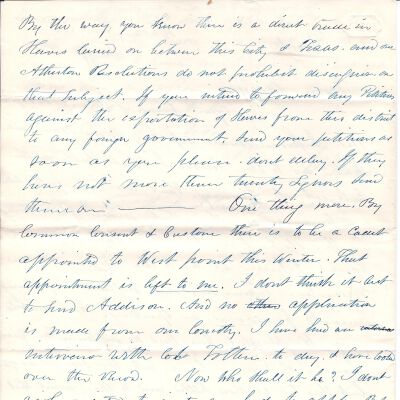 By the way you know there is a direct trade in
Slaves carried on between this City & Texas. and on
Atherton Resolutions do not prohibit discussion on
that subject. If you intend to forward any Petitions
against the exportation of Slaves from this district
to any foreign government. send your petitions as
soon as you please. dont delay. If they
have not more than twenty signers send
them on. ——— One thing more. By
Common Consent & Custom there is to be a Cadet
appointed to West point this Winter. That
appointment is left to me. I dont think it best
to send Addison. And no other application
is made from our County. I have had an
interview with Col Totten to day, & have looked
over the record. Now who shall it be? I dont